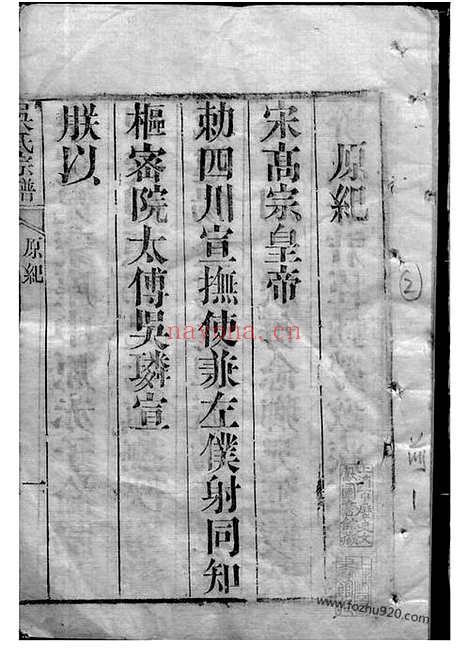 原紀
宋高宗皇帝
勅四川宣撫使兼左僕射同知
樞審院太傅吳璘宣
朕以
吳氏宗譜
原紀
一
2
nayona.cn
www.fozhu920.com